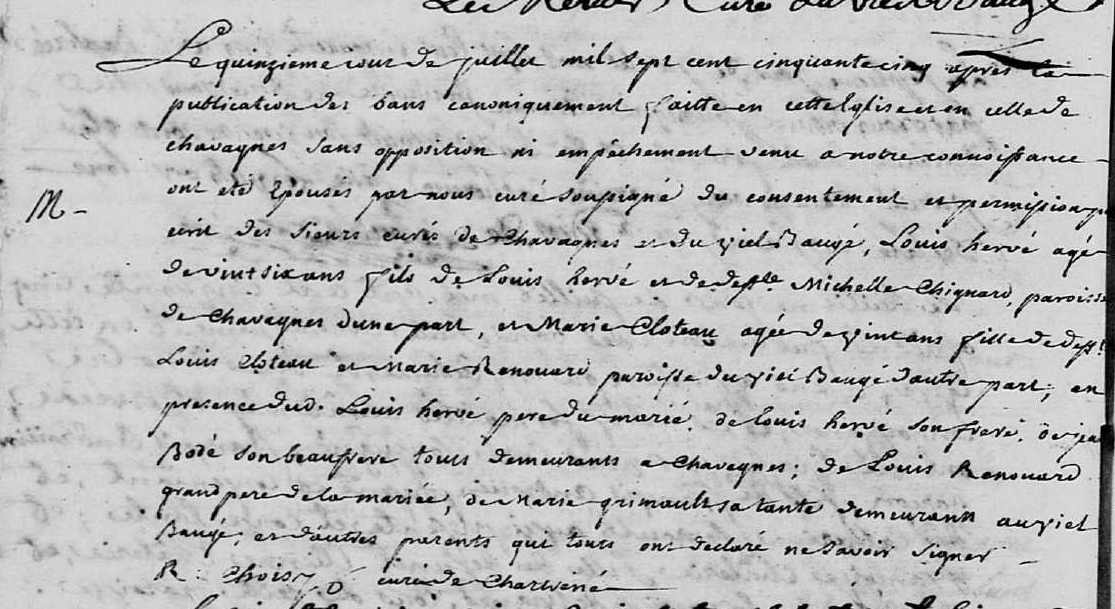 Curé du viel Baugé
Le quinzieme jour de juillet mil sept cent cinquante cinq apres la
publication des bans canoniquement faitte en cette Eglise et en celle de
chavagnes sans opposition ni empêchement venu a notre connoissance
M -
ont eté Epousés par nous curé soussigné du consentement et permission p
ecrit des sieurs curés de Chavagnes et du viel Baugé, Louis hervé agé
de vint six ans fils de Louis hervé et de deffte Michelle Chignard, paroisse
de Chavagnes dune part, et Marie Cloteau agée de vint ans fille de defft
Louis Cloteau et Marie Renouard paroisse du viel Baugé dautre part; en
presence dud. Louis hervé pere du marié, de louis hervé son frere, de jea
Bodé son beaufrere touts demeurants a Chavagnes; de Louis Renouard
grand pere de la mariée, de Marie grimault sa tante demeurann au viel
Baugé; et d'autres parents qui touts ont declaré ne savoir signer
R. Choisy curé de Chartrené